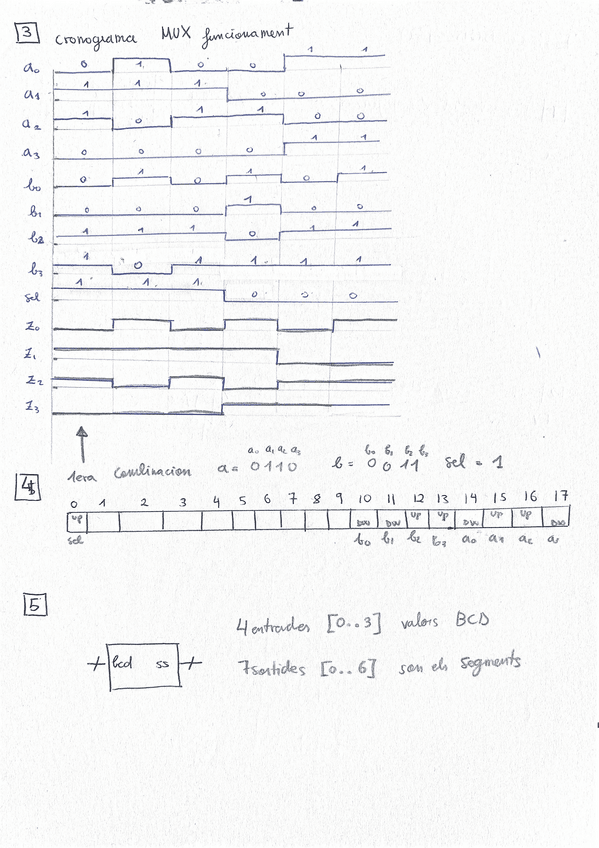 3 Cronograma MUX funcionament
a0 0 1 0 0 1 1
a1 1 1 1 0 0 0
a2 1 0 1 1 0 0
a3 0 0 0 0 1 1
b0 0 1 0 1 0 1
b1 0 0 0 1 0 0
b2 1 1 1 0 1 1
b3 1 0 1 1 1 1
sel 1 1 1 0 0 0
Z0
Z1
Z2
Z3
a0 a1 a2 a3 b0 b1 b2 b3
1era Combinacion a = 0110 b = 0011 sel = 1
4
0 1 2 3 4 5 6 7 8 9 10 11 12 13 14 15 16 17
UP DW DW UP UP DW UP UP DW
sel b0 b1 b2 b3 a0 a1 a2
5
4 entrades [0..3] valors BCD
bcd ss
7 sortides [0..6] son els segments